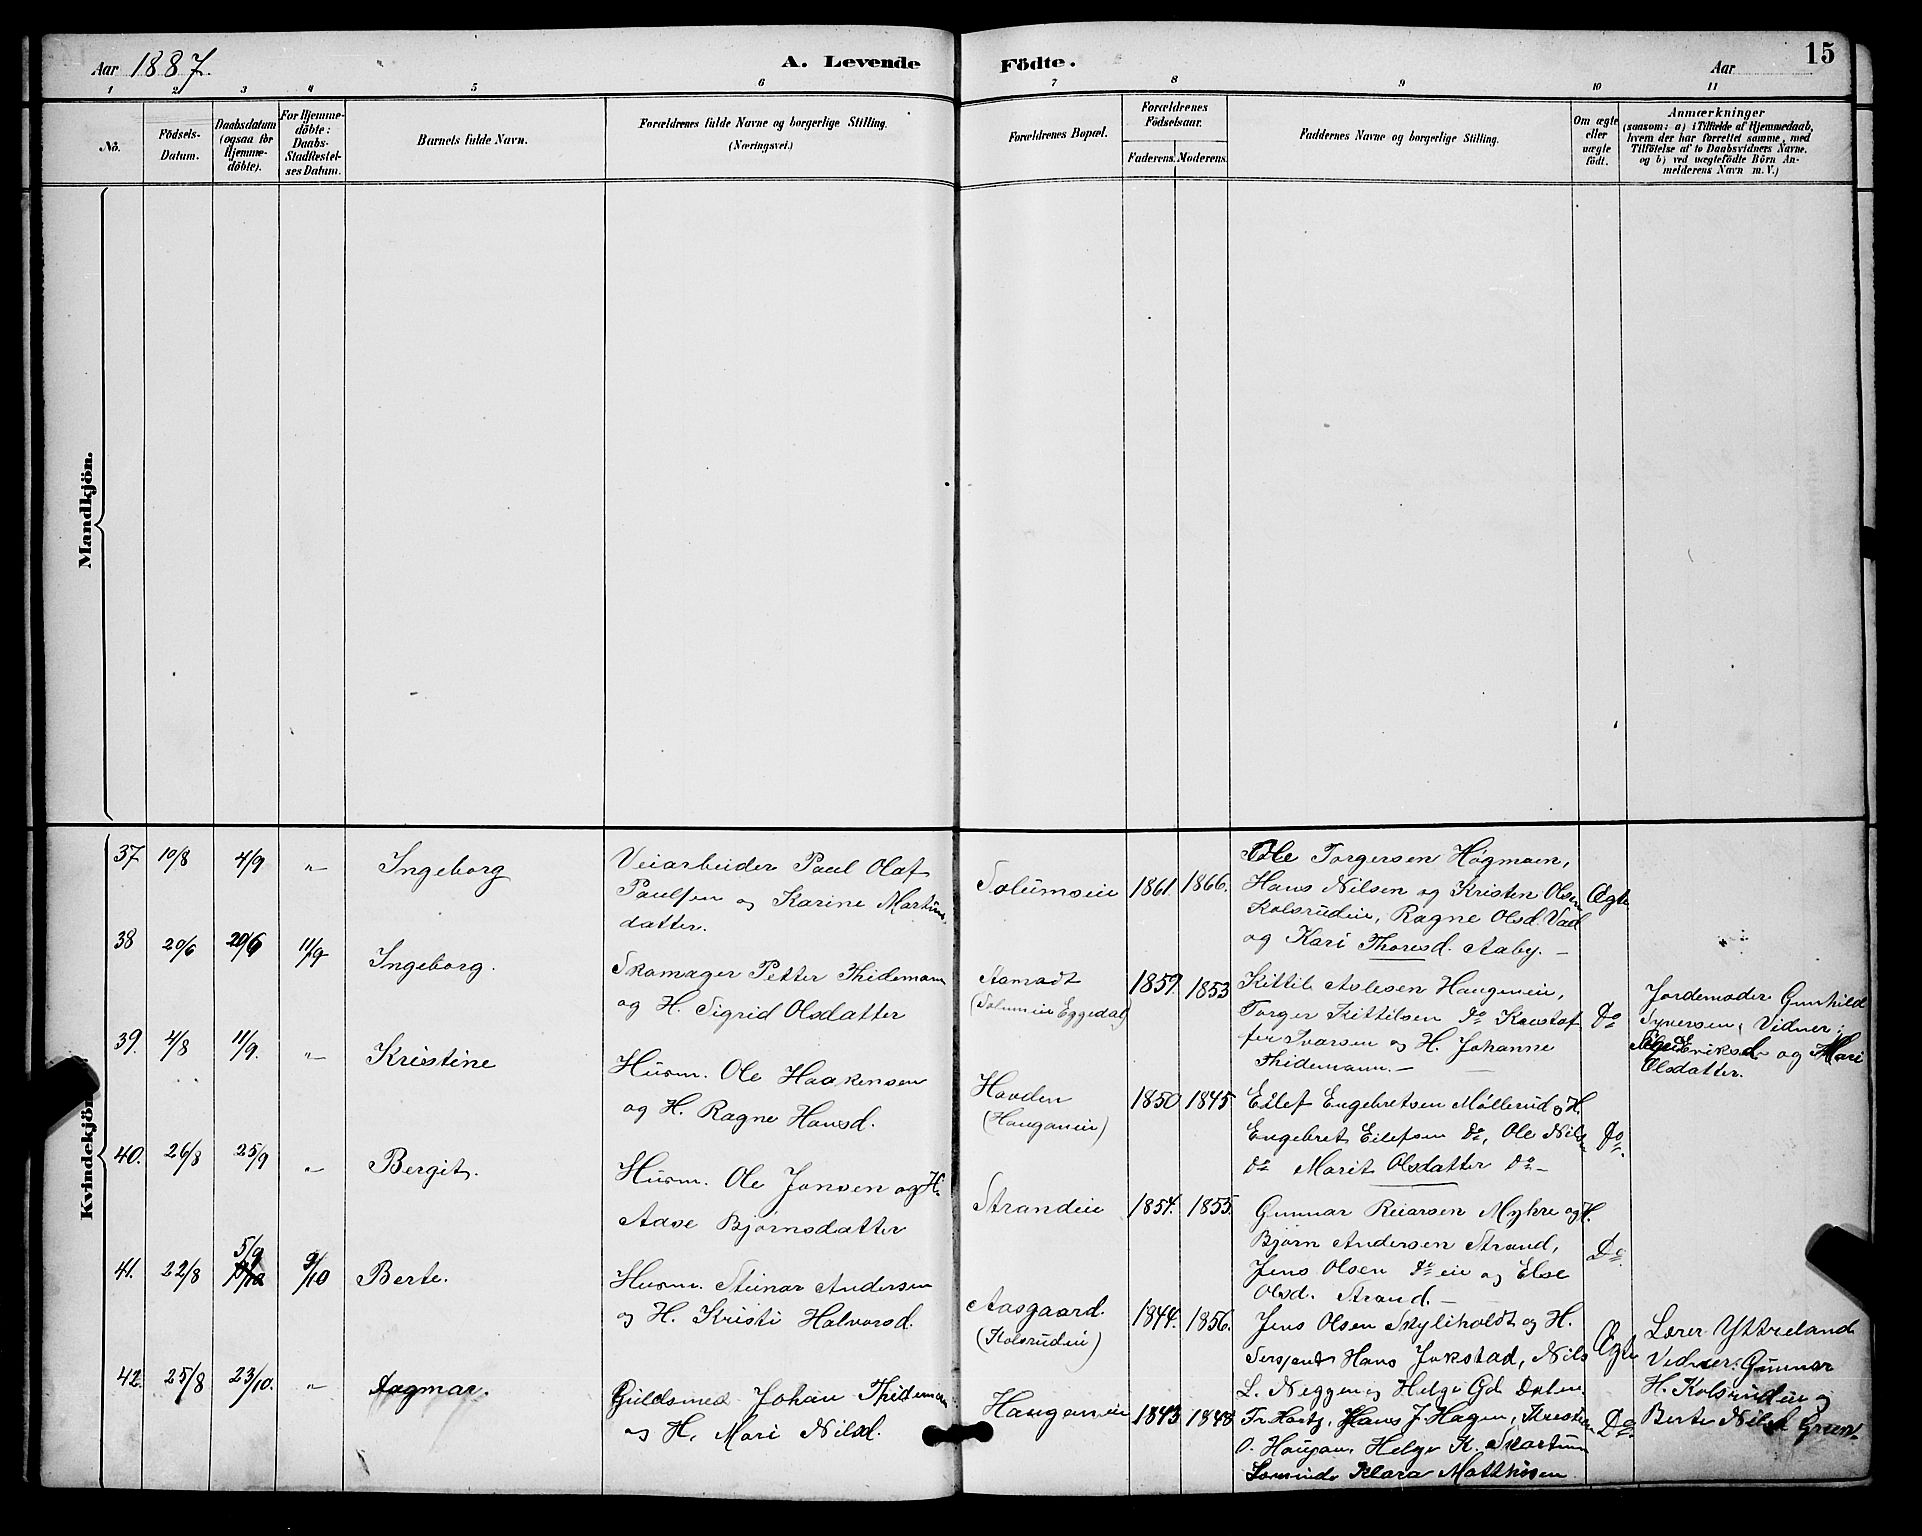 Aar 1887. A. Levende Födte. Aar 15
1 2 3 4 5 6 7 8 9 10 11
No.
Födsels-
Datum.
Daabsdatum
(ogsaa for
Hjemme-
döbte).
For Hjemme-
döbte:
Daabs-
Stadfestel-
ses Datum.
Barnets fulde Navn.
Forældrenes fulde Navne og borgerlige Stilling.
(Næringsvei.)
Forældrenes Bopæl.
Forældrenes
Födselsaar.
Faderens. Moderens.
Faddernes Navne og borgerlige Stilling.
Om ægte
eller
uægte
födt.
Anmærkninger
(saasom: a) i Tilfælde af Hjemmedaab,
hvem der har forrettet samme, med
Tilföielse af to Daabsvidners Navne,
og b) ved uægtefödte Börn An-
melderens Navn m. V.)
Mandkjön.
Kvindekjön.
37 10/8 4/9 " Ingeborg
Veiarbeider Paul Olaf
Paulsen og Karine Martins
datter.
Solumseie 1861. 1866.
Ole Torgersen Høgmoen,
Hans Nilsen og Kristen Olsen
Kolsrudeie, Ragne Olsd. Vad
og Kari Thoresd. Aaby. —
Ægte
38 20/6 20/6 11/9 Ingeborg.
Skomager Petter Thidemann
og H. Sigrid Olsdatter
Aamodt
(Solumeie Eggedal)
1859. 1853
Kittil Aslesen Haugeneie,
Torger Kittilsen do
fer Ivarsen og H. Johanne
Thidemann. —
Do
Jordemoder Gunhild
Syversen, Vidner:
Eriksd. og Mari
Olsdatter.
39. 4/8 11/9. " Kristine
Husm. Ole Haakensen
og H. Ragne Hansd.
Hovden
(Hauganeie)
1850 1845
Eilef Engebretsen Møllerud og H.
Engebret Eilefsen do, Ole Nilsen
do Marit Olsdatter do —
Do.
40. 26/8 25/9 " Bergit.
Husm. Ole Jonsen og H.
Aase Bjørnsdatter
Strandeie 1854. 1855.
Gunnar Reiarsen Myhre og H.
Bjørn Andersen Strand,
Jens Olsen do eie og Else
Olsd. Strand. —
Do.
41. 22/8 5/9 9/10 Berte.
Husm. Steinar Andersen
og H. Kristi Halvorsd.
Aasgaard.
(Kolsrudeie)
1844. 1856.
Jens Olsen Skyliholdt og H.
Sersjant Hans Jokstad, Nils
L. Neggen og Helge Gd.
Ægte
Lærer Yttreland
Vidner: Gunnar
H. Kolsrudeie og
Berte Nilsd. Green.
42. 25/8 23/10. " Dagmar.
Guldsmed Johan Thideman
og H. Mari Nilsd.
Hauganeie 1843 1848
Hans J. Hagen, Kristian
O. Haugan, Helge K. Skartum
Klara Matthisen
Do.